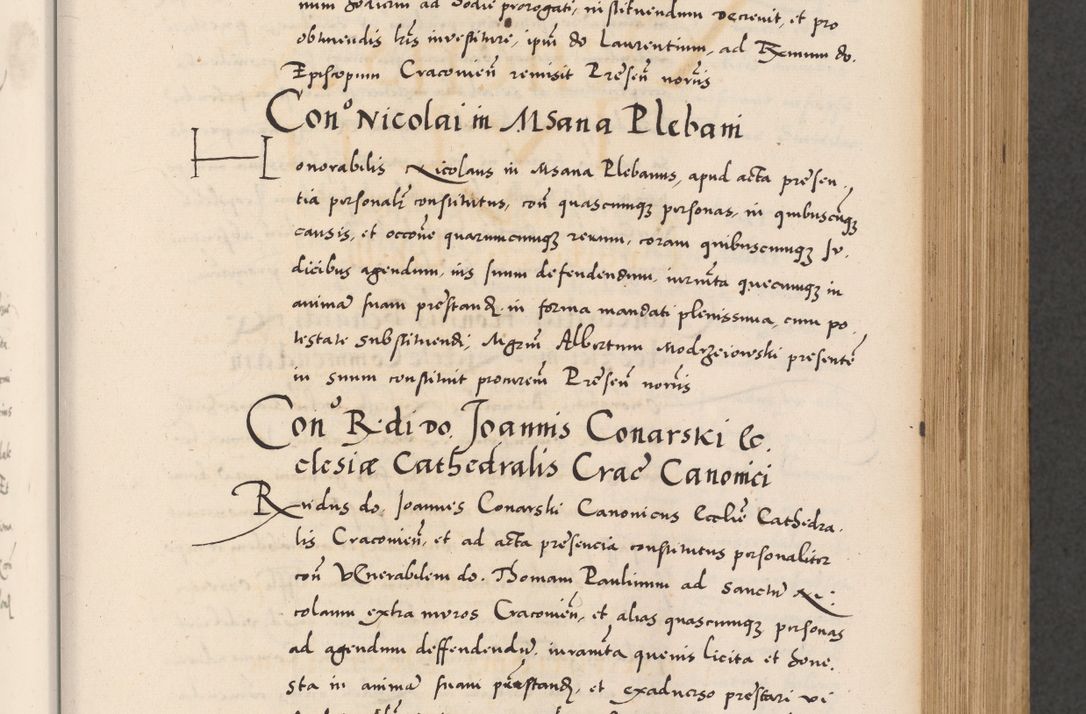 num hodiernum ad hodie prorogati, instituendum decrevit, et pro
obtinendis lrīs investiture, ipm̄ do Laurentium, ad Rx̄mum do.
Episcopum Cracovien̄ remisit Pr̄esen̄ noriis
Con̄o Nicolai in Msana Plebani
Honorabilis Nicolaus in Msana Plebanus, apud acta presen-
tia personalr̄ constitutus, con̄ quascumqȝ personas, in quibuscūqȝ
causis, et occōne quarumcumqȝ rerum, coram quibuscumqȝ Ju-
dicibus agendum, ius suum defendendum, iuram̄ta quecumqȝ in
animā suam prestand̄ in forma mandati plenissima, cum po-
testate substituendi, Mgrm̄ Albertum Modrzeiowski presentē
in suum constituit procurem̄ Pr̄esen̄ noriis
Con̄o R-di do. Joannis Conarski Ec-
clesiæ Cathedralis Crac̄ Canonici
Rn̄dus do. Joannes Conarski Canonicus Ecclīe Cathedra-
lis Cracovien̄, et ad acta presencia constitutus personaliter
con̄ Venerabilem do. Thomam Paulinum ad Sanctū Ni-
colaum extra muros Cracovien̄, et alias quascumqȝ personas
ad agendum deffendendū, iuram̄ta quevis licita et hone-
sta in animā suam prestand̄, et exadverso prestari vi